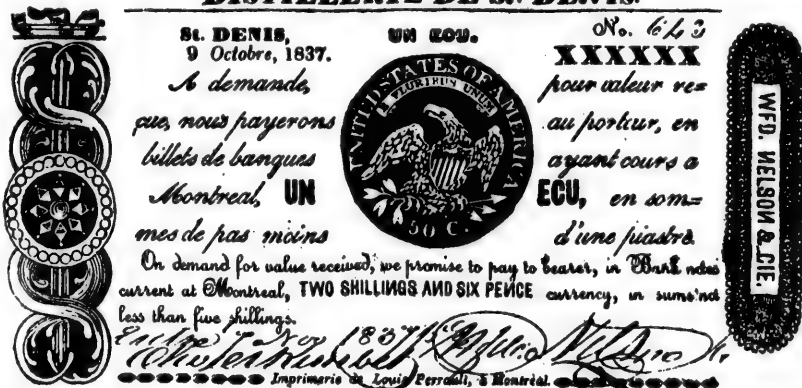 DISTILLERIE DE St. DENIS.
St. DENIS, UN ECU. No. 643
9 Octobre, 1837. XXXXXX
A demande, pour valeur re=
çue, nous payerons au porteur, en
billets de banques ayant cours a
Montreal, UN ECU, en som=
mes de pas moins d'une piastre
UNITED STATES OF AMERICA
E PLURIBUS UNUM
50 C.
On demand for value received, we promise to pay to bearer, in Bank notes
current at Montreal, TWO SHILLINGS AND SIX PENCE currency, in sums not
less than five shillings.
Nov 1837
Nelson
Imprimerie de Louis Perrault, à Montréal.
WFD. NELSON & CIE.